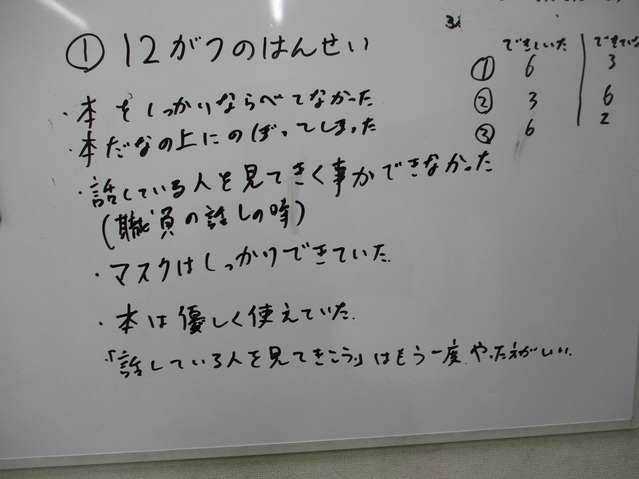 ① 12がつのはんせい
・本をしっかりならべてなかった
・本だなの上にのぼってしまった
・話している人を見てきく事ができなかった
(職員の話しの時)
・マスクはしっかりできていた.
・本は優しく使えていた.
「話している人を見てきこう」はもう一度 やったえがしい.
3
できていた できてい
① 6 3
② 3 6
③ 6 2